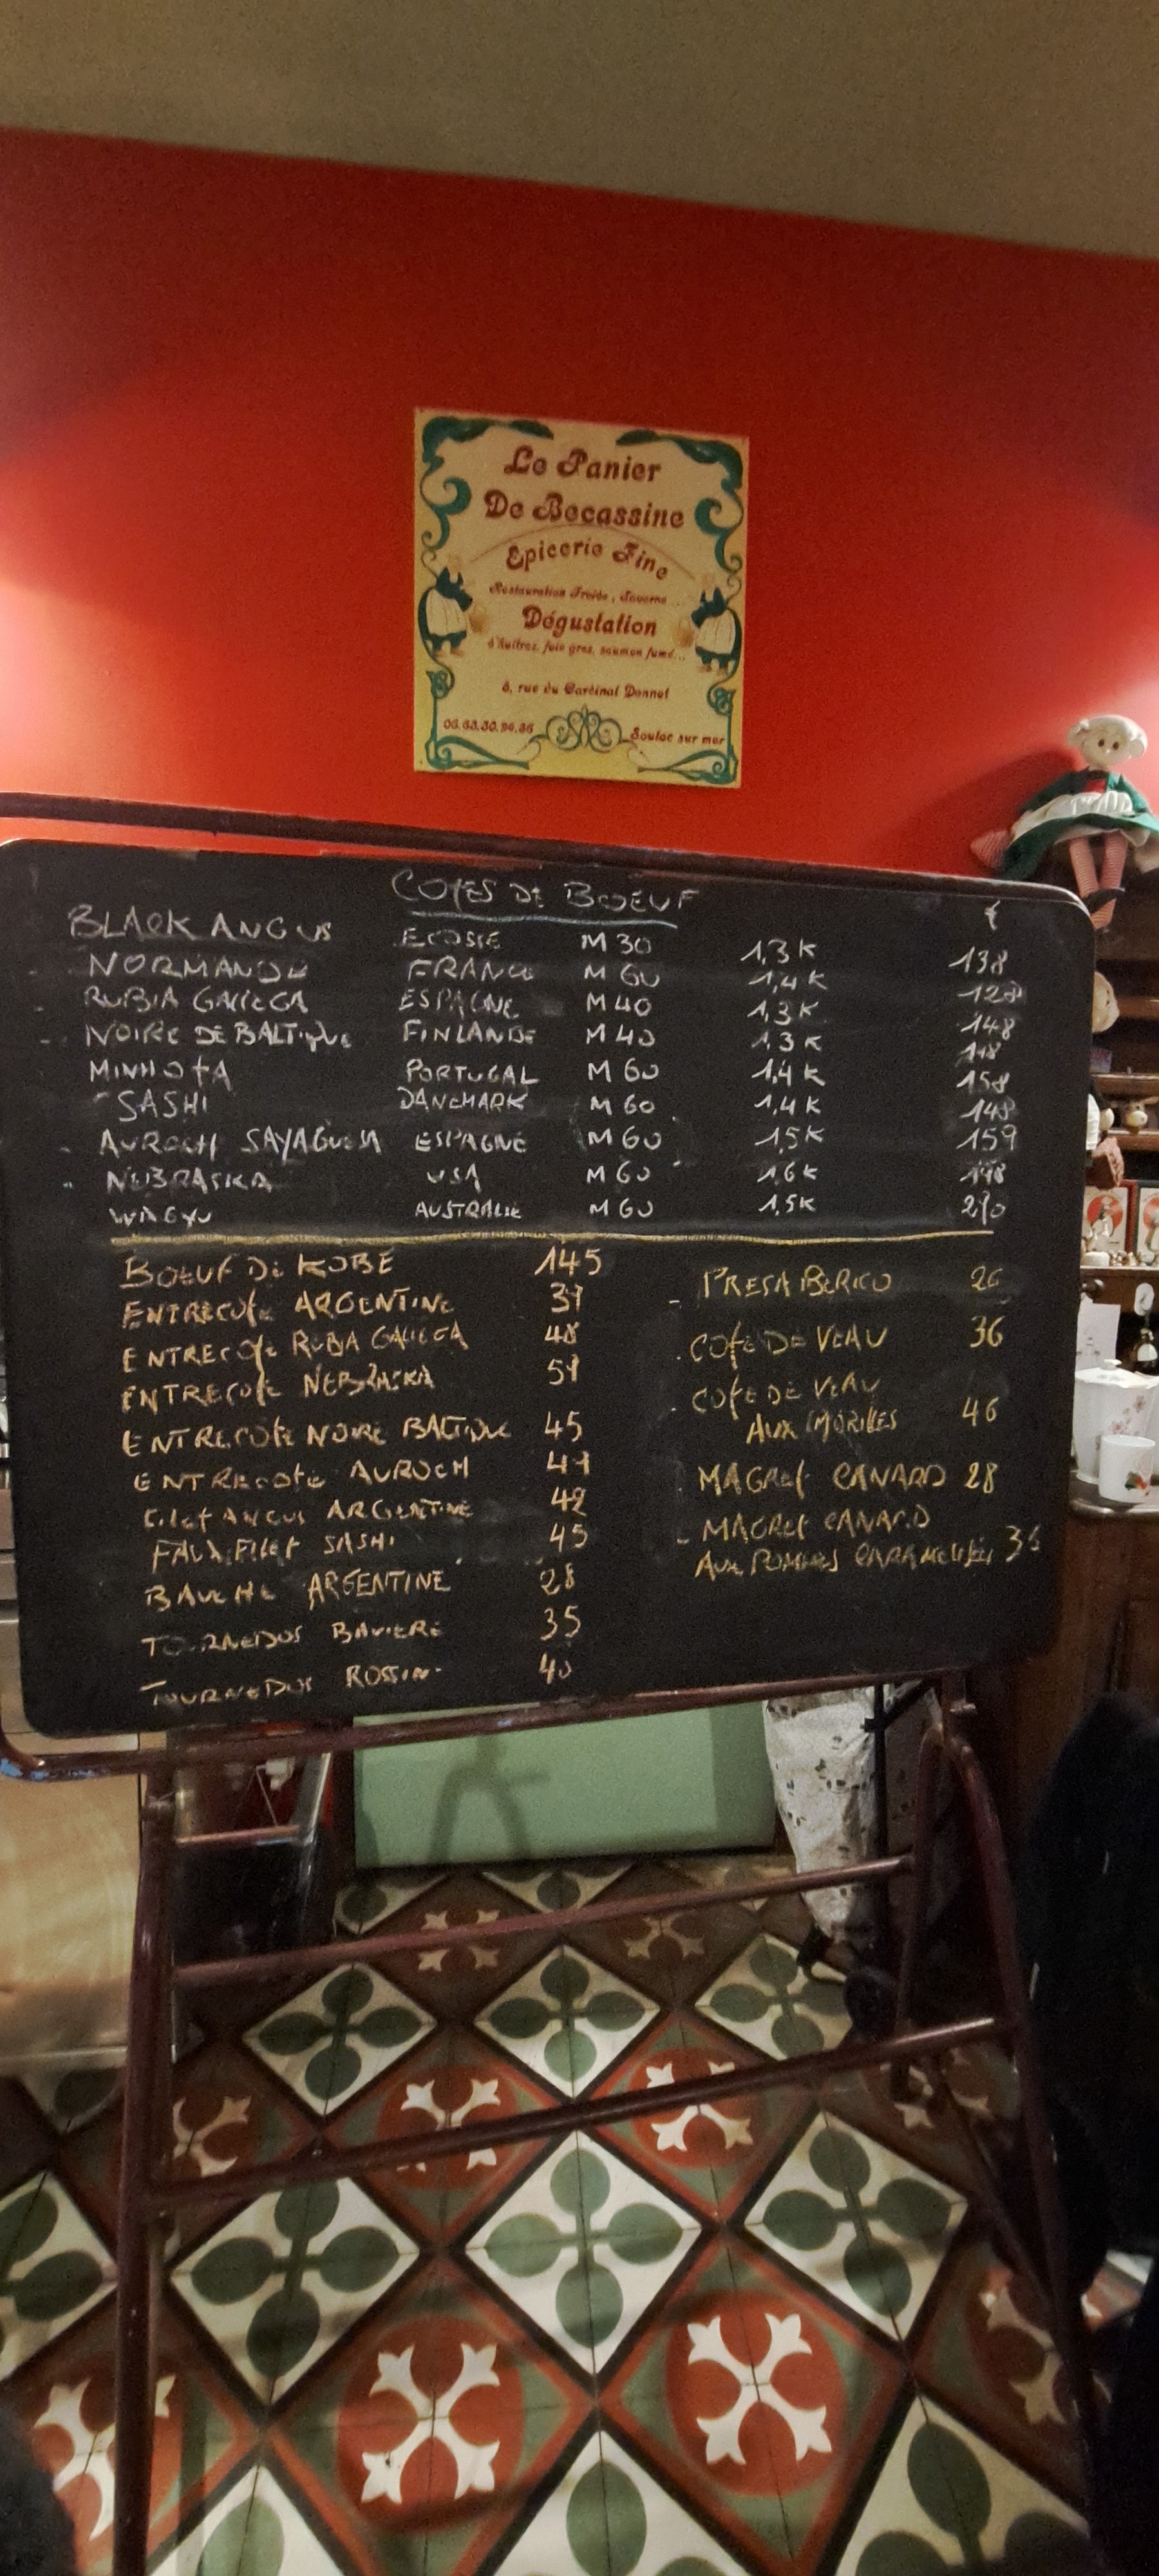 Le Panier
De Becassine
Epicerie Fine
Restauration Froide, Taverne...
Dégustation
d'huîtres, foie gres, saumon fumé...
6, rue du Cardinal Donnet
Soulac sur mer
COTES DE BOEUF
€
BLACK ANGUS ECOSSE M 30 1,3 K 138
NORMANDE FRANCE M 60 1,4 K 128
RUBIA GALLEGA ESPAGNE M 40 1,3 K 148
NOIRE DE BALTIQUE FINLANDE M 40 1,3 K
MINHOTA PORTUGAL M 60 1,4 K 158
SASHI DANEMARK M 60 1,4 K 148
AUROCH SAYAGUESA ESPAGNE M 60 1,5K 159
NEBRASKA USA M 60 1,6 K 148
WAGYU AUSTRALIE M 60 1,5K 290
BOEUF DE KOBE 145
ENTRECOTE ARGENTINE
ENTRECOTE RUBIA GALLEGA 48
ENTRECOTE NEBRASKA
ENTRECOTE NOIRE BALTIQUE 45
ENTRECOTE AUROCH
FILET ANGUS ARGENTINE 42
FAUX FILET SASHI 45
BAVETTE ARGENTINE 28
TOURNEDOS BAVIERE 35
TOURNEDOS ROSSINI 40
- PRESA IBERICO 26
COTE DE VEAU 36
COTE DE VEAU
AUX MORILLES 46
MAGRET CANARD 28
- MAGRET CANARD
AUX POMMES CARAMELISEES